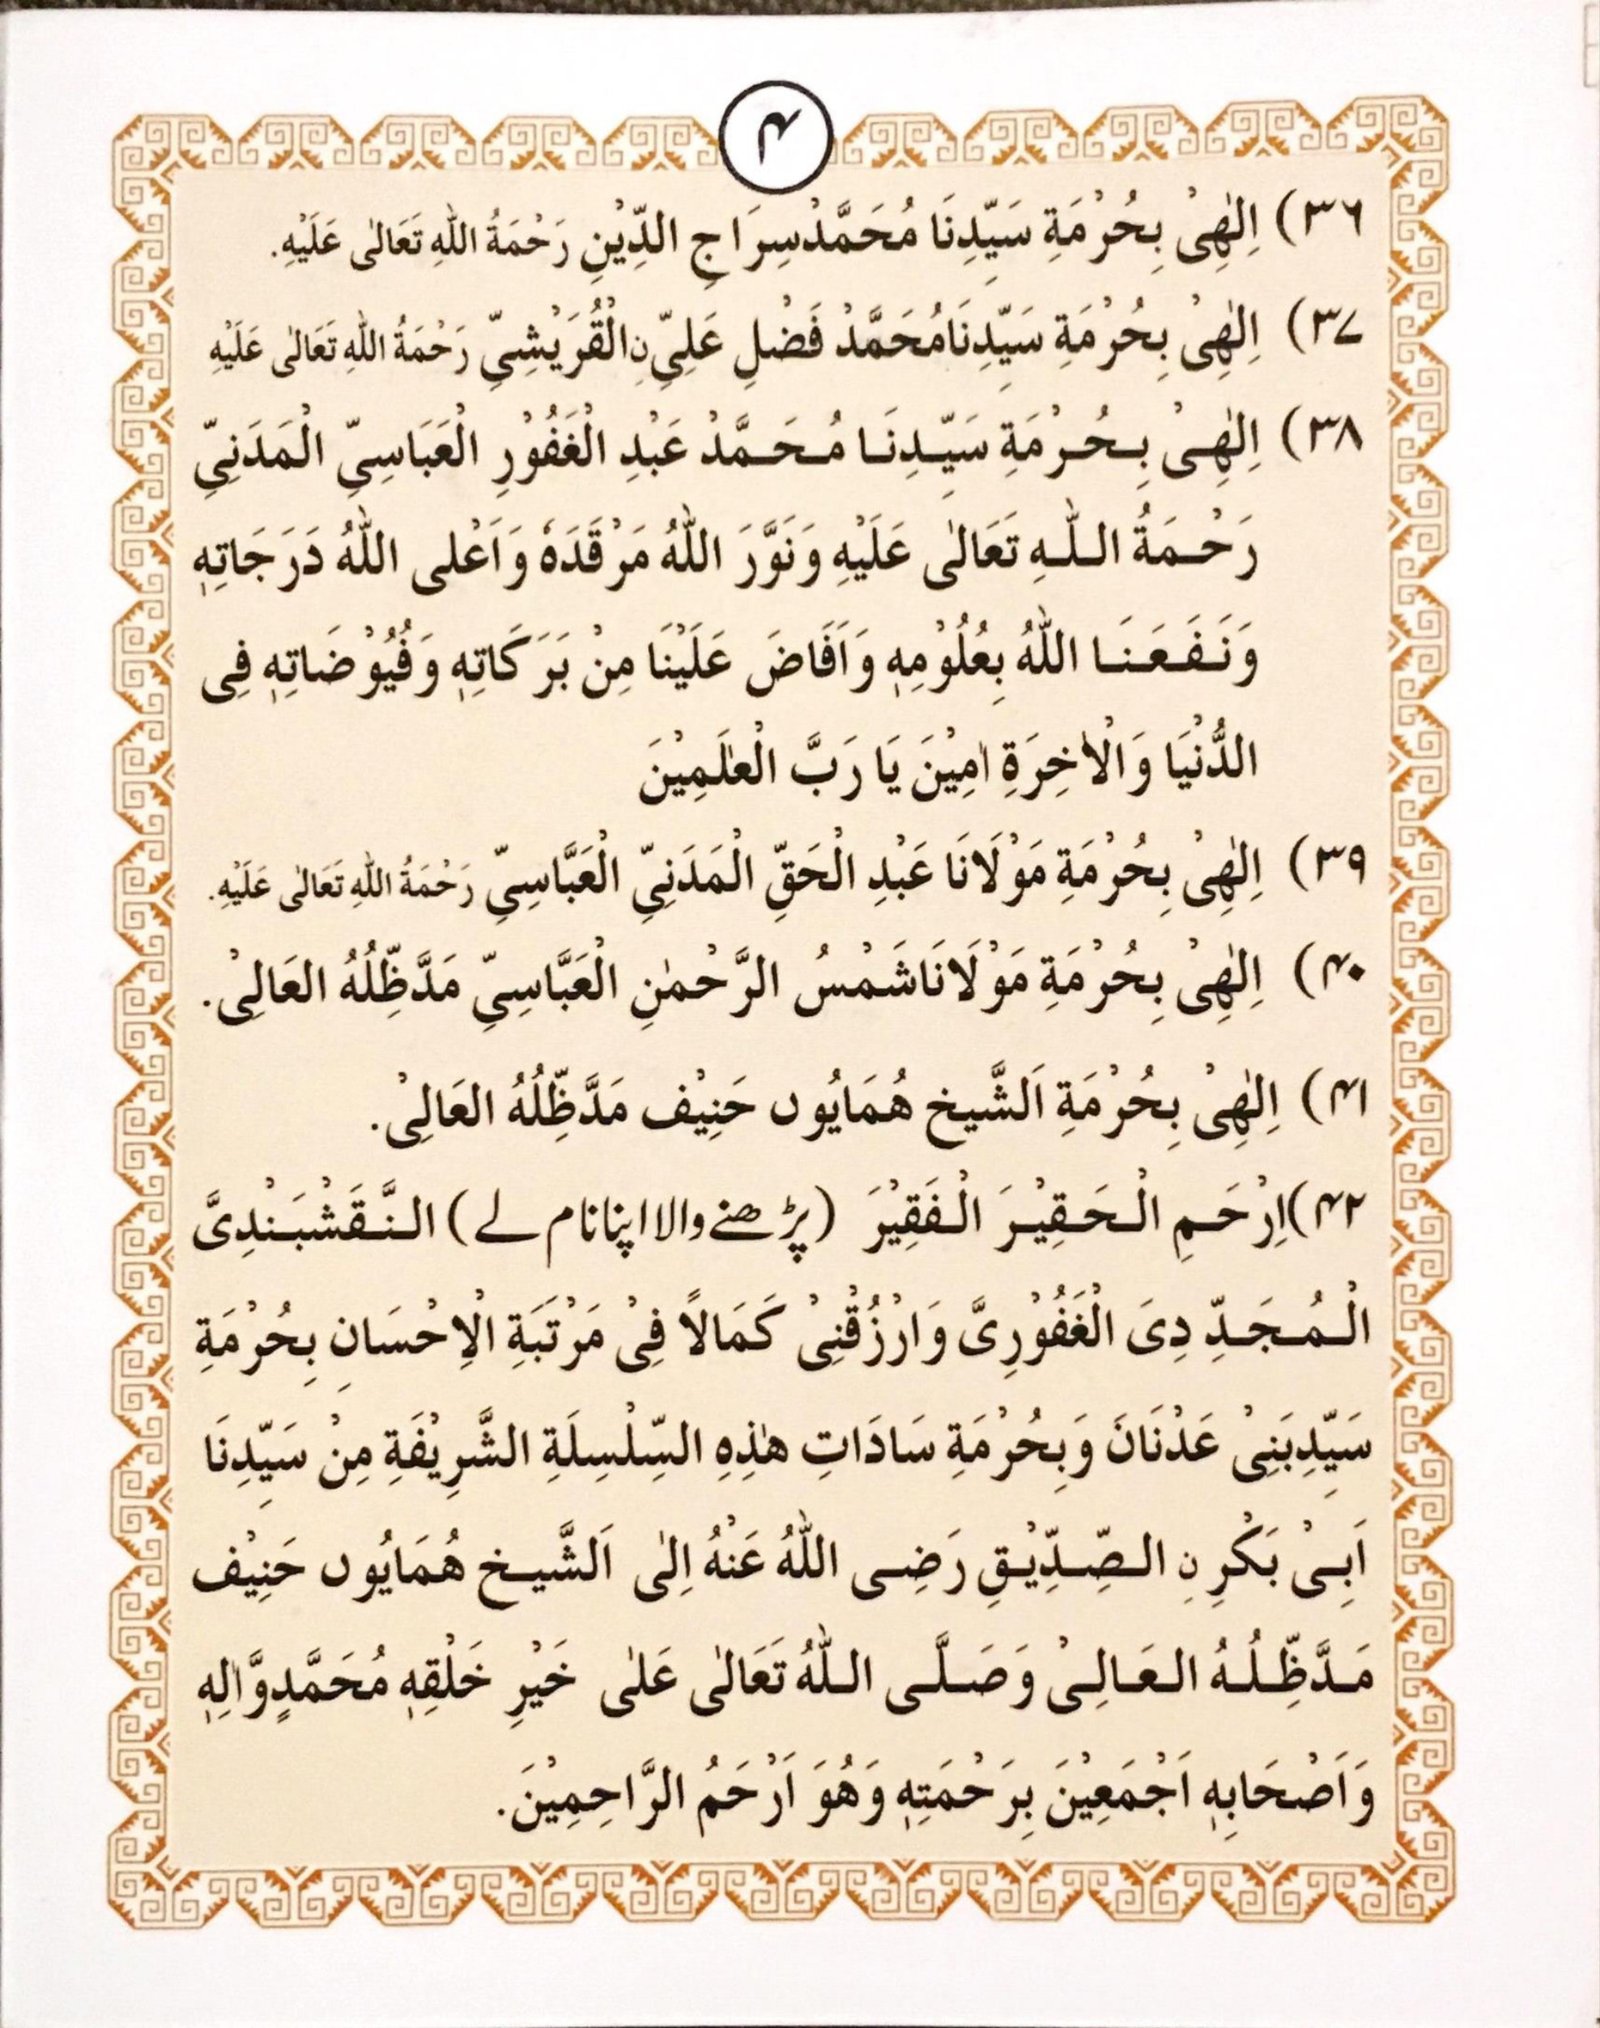 ۴
۳۶) اِلٰهِیْ بِحُرْمَةِ سَيِّدِنَا مُحَمَّدْ سِرَاجِ الدِّيْنِ رَحْمَةُ اللّٰهِ تَعَالٰی عَلَيْهِ.
۳۷) اِلٰهِیْ بِحُرْمَةِ سَيِّدِنَا مُحَمَّدْ فَضْلِ عَلِیِّ نِ الْقُرَيْشِیِّ رَحْمَةُ اللّٰهِ تَعَالٰی عَلَيْهِ
۳۸) اِلٰهِیْ بِحُرْمَةِ سَيِّدِنَا مُحَمَّدْ عَبْدِ الْغَفُوْرِ الْعَبَاسِیِّ الْمَدَنِیِّ
رَحْمَةُ اللّٰهِ تَعَالٰی عَلَيْهِ وَنَوَّرَ اللّٰهُ مَرْقَدَهٗ وَاَعْلی اللّٰهُ دَرَجَاتِهٖ
وَنَفَعَنَا اللّٰهُ بِعُلُوْمِهٖ وَاَفَاضَ عَلَيْنَا مِنْ بَرَكَاتِهٖ وَفُيُوْضَاتِهٖ فِی
الدُّنْيَا وَالْاٰخِرَةِ اٰمِيْنَ يَا رَبَّ الْعٰلَمِيْنَ
۳۹) اِلٰهِیْ بِحُرْمَةِ مَوْلَانَا عَبْدِ الْحَقِّ الْمَدَنِیِّ الْعَبَّاسِیِّ رَحْمَةُ اللّٰهِ تَعَالٰی عَلَيْهِ.
۴۰) اِلٰهِیْ بِحُرْمَةِ مَوْلَانَا شَمْسُ الرَّحْمٰنِ الْعَبَّاسِیِّ مَدَّظِّلُهُ العَالِیْ.
۴۱) اِلٰهِیْ بِحُرْمَةِ اَلشَّيخ هُمَايُوں حَنِيْف مَدَّظِّلُهُ العَالِیْ.
۴۲) اِرْحَمِ الْحَقِيْرَ الْفَقِيْرَ (پڑھنے والا اپنا نام لے) النَّقَشْبَنْدِیَّ
الْمُجَدِّدِیَ الْغَفُوْرِیَّ وَارْزُقْنِیْ كَمَالًا فِیْ مَرْتَبَةِ الْاِحْسَانِ بِحُرْمَةِ
سَيِّدِ بَنِیْ عَدْنَانَ وَبِحُرْمَةِ سَادَاتِ هٰذِهِ السِّلْسِلَةِ الشَّرِيْفَةِ مِنْ سَيِّدِنَا
اَبِیْ بَكْرِ نِ الصِّدِّيْقِ رَضِی اللّٰهُ عَنْهُ اِلٰی اَلشَّيخ هُمَايُوں حَنِيْف
مَدَّظِّلُهُ العَالِیْ وَصَلَّی اللّٰهُ تَعَالٰی عَلٰی خَيْرِ خَلْقِهٖ مُحَمَّدٍ وَّاٰلِهٖ
وَاَصْحَابِهٖ اَجْمَعِيْنَ بِرَحْمَتِهٖ وَهُوَ اَرْحَمُ الرَّاحِمِيْنَ.